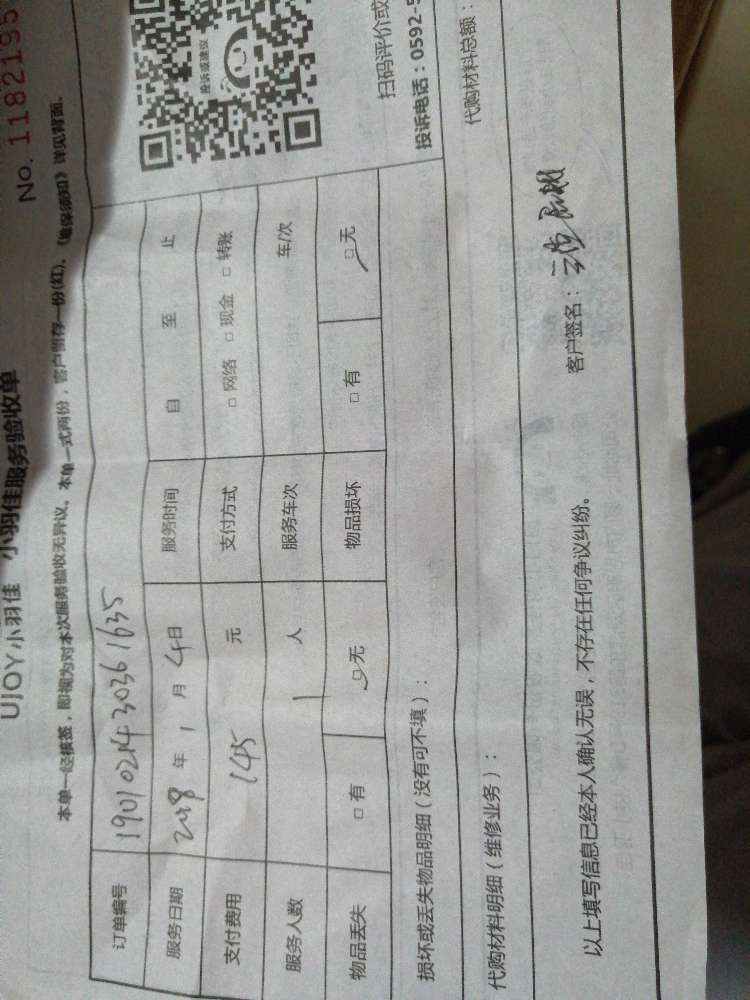 No. 1182195
UJOY小羽佳 小羽佳服务验收单
本单一经核签，即视为对本次服务验收无异议。本单一式两份，客户留存一份(红)。《维保须知》详见背面。
订单编号 1901021430361635
服务日期 年 1 月 4 日 服务时间 自 至 止
支付费用 145 元 支付方式 □ 网络 □ 现金 □ 转账
服务人数 1 人 服务车次 车/次
物品丢失 □ 有 □ 无 物品损坏 □ 有 □ 无
投诉或建议
扫码评价或
投诉电话：0592-5
损坏或丢失物品明细（没有可不填）：
代购材料明细（维修业务）：
代购材料总额：
以上填写信息已经本人确认无误，不存在任何争议纠纷。
客户签名：